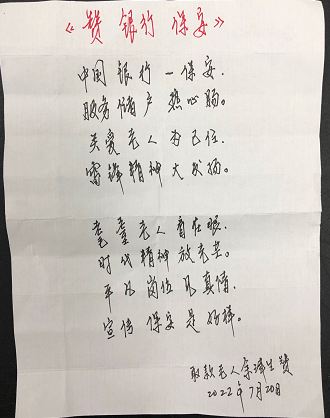 《赞 银行 保安》
中国 银行 一保安.
服务 储户 热心肠。
关爱 老人 为己任.
雷锋 精神 大发扬。
耄耋 老人 看在眼.
时代 精神 放光芒。
平凡 岗位 见真情.
宣传 保安 是好样。
取款老人余泽生赞
2022年7月20日